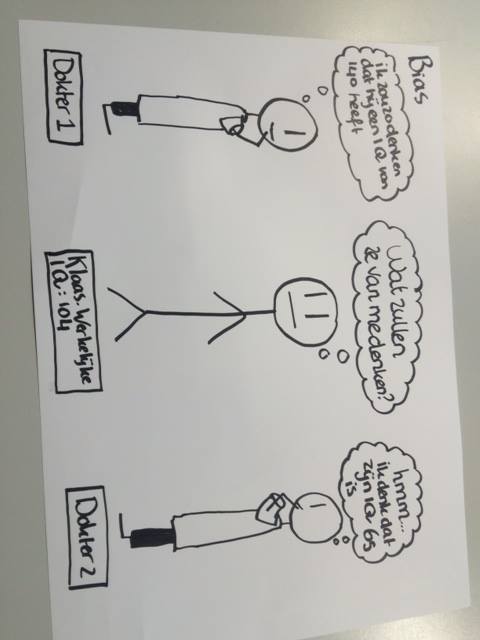 Bias
ik zou zo denken
dat hij een IQ van
140 heeft
Wat zullen
ze van me denken?
hmm...
ik denk dat
zijn IQ 65
is
Dokter 1
Klaas. Werkelijke
IQ: 104
Dokter 2